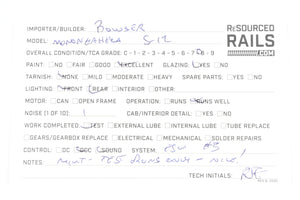 IMPORTER/BUILDER: BOWSER
RESOURCED RAILS .COM
MODEL: MONONGAHELA S-12
OVERALL CONDITION/TCA GRADE: C-1-2-3-4-5-6-7-8-9
PAINT: NO FAIR GOOD EXCELLENT GLAZING: YES NO
TARNISH: NONE MILD MODERATE HEAVY SPARE PARTS: YES NO
LIGHTING FRONT REAR INTERIOR OTHER
MOTOR: CAN OPEN FRAME OPERATION: RUNS RUNS WELL
NOISE (1 OF 10): 1 CAB/INTERIOR DETAIL: YES NO
WORK COMPLETED: TEST EXTERNAL LUBE INTERNAL LUBE TUBE REPLACE
GEARS/GEARBOX REPLACE ELECTRICAL MECHANICAL SOLDER REPAIRS
CONTROL: DC DCC SOUND SYSTEM: TSU
NOTES: MINT - TES RUNS - NICE!
TECH INITIALS: